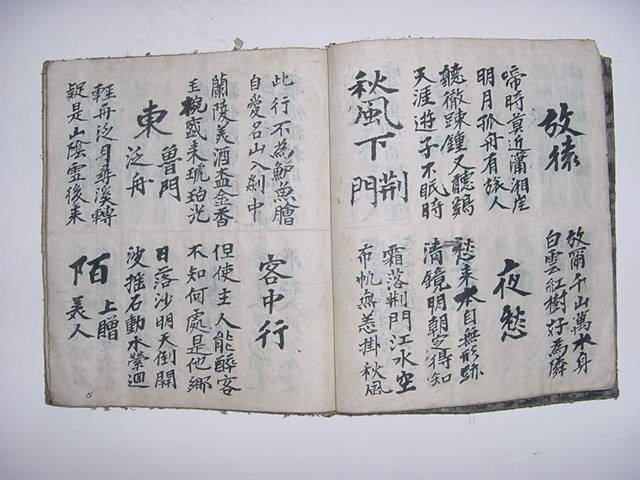 放猿
放爾千山萬水身
白雲紅樹好為隣
啼時莫近瀟湘岸
明月孤舟有旅人
夜愁
聽徹踈鐘又聽鷄
天涯遊子不眠時
愁来本自無形跡
清鏡明朝定得知
秋風下荊門
霜落荊門江水空
布帆無恙掛秋風
此行不為鱸魚膾
自愛名山入剡中
客中行
蘭陵美酒盃金香
玉椀盛来琥珀光
但使主人能醉客
不知何處是他鄉
東魯門泛舟
日落沙明天倒開
波搖石動水縈迴
輕舟泛月尋溪轉
疑是山陰雪後来
陌上贈美人